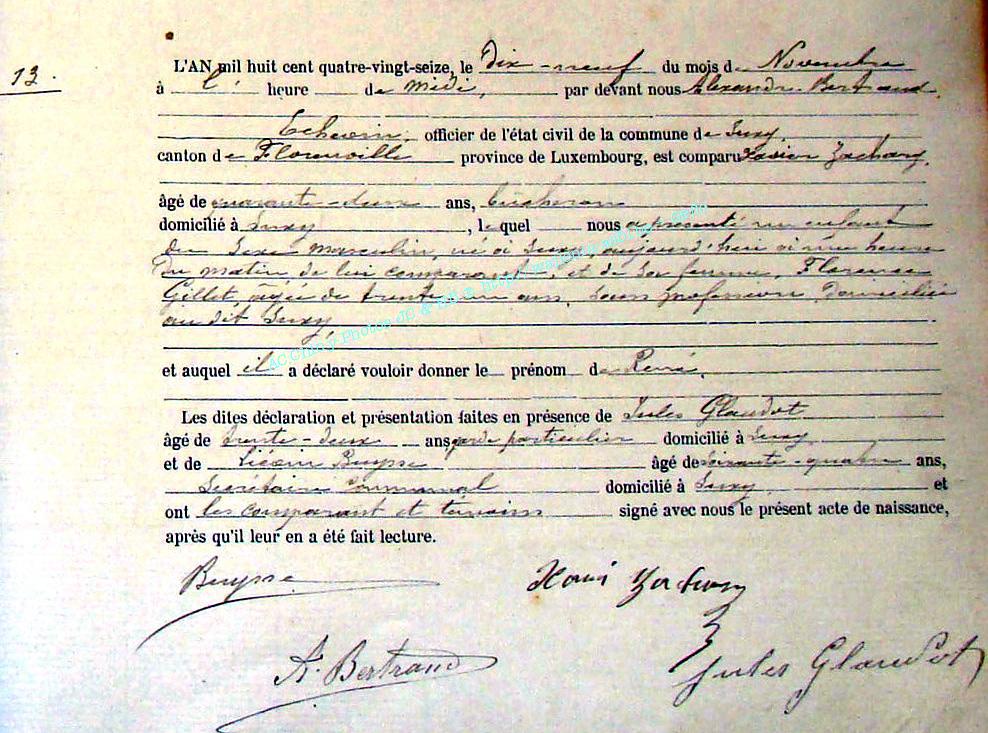 13.
L'AN mil huit cent quatre-vingt-seize, le dix-neuf du mois de Novembre
à l' heure de midi, par devant nous Alexandre Bertrand,
Echevin, officier de l'état civil de la commune de Suxy,
canton de Florenville province de Luxembourg, est comparu Xavier Zachary,
âgé de quarante-deux ans, bûcheron
domicilié à Suxy, lequel nous a présenté un enfant
du sexe masculin, né à Suxy, aujourd'hui à une heure
du matin de lui comparant, et de son femme, Florence
Gillet, âgée de trente un ans, sans profession, domiciliée
au dit Suxy,
et auquel il a déclaré vouloir donner le prénom de René.
Les dites déclaration et présentation faites en présence de Jules Glaudot
âgé de trente-deux ans, garde particulier domicilié à Suxy
et de Buysse âgé de soixante-quatre ans,
Secrétaire communal domicilié à Suxy et
ont les comparant et témoins signé avec nous le présent acte de naissance,
après qu'il leur en a été fait lecture.
Buysse
Zachary
A. Bertrand
Jules Glaudot